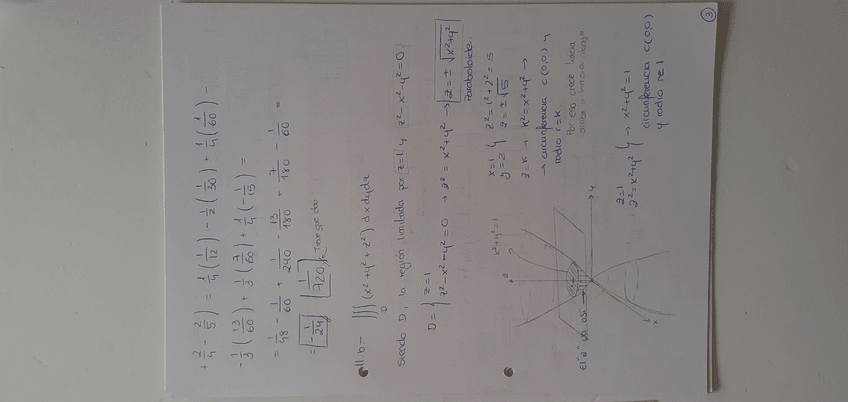 + 2/4 - 2/5) = 1/4 (1/12) - 1/2 (1/30) + 1/4 (1/60) -
- 1/3 (13/60) + 1/3 (7/60) + 1/4 (-1/15) =
= 1/48 - 1/60 + 1/240 - 13/180 + 7/180 - 1/60 =
= -1/24 1/720
11.b.- ∭D (x²+y²+z²) dxdydz
Siendo D, la región limitada por z=1 y z²-x²-y²=0
D = { z=1
z²-x²-y²=0 → z² = x²+y² → z = ± √x²+y²
Paraboloide.
x=1
y=2 } z² = 1²+2² = 5
z = ±√5
z=k → k² = x²+y² →
→ circunferencia C(0,0) y
radio r=k.
Por eso crece hacia
arriba y hacia abajo
x²+y²=1
z
y
x
z=1
z²=x²+y² } → x²+y²=1
circunferencia C(0,0)
y radio r=1
3